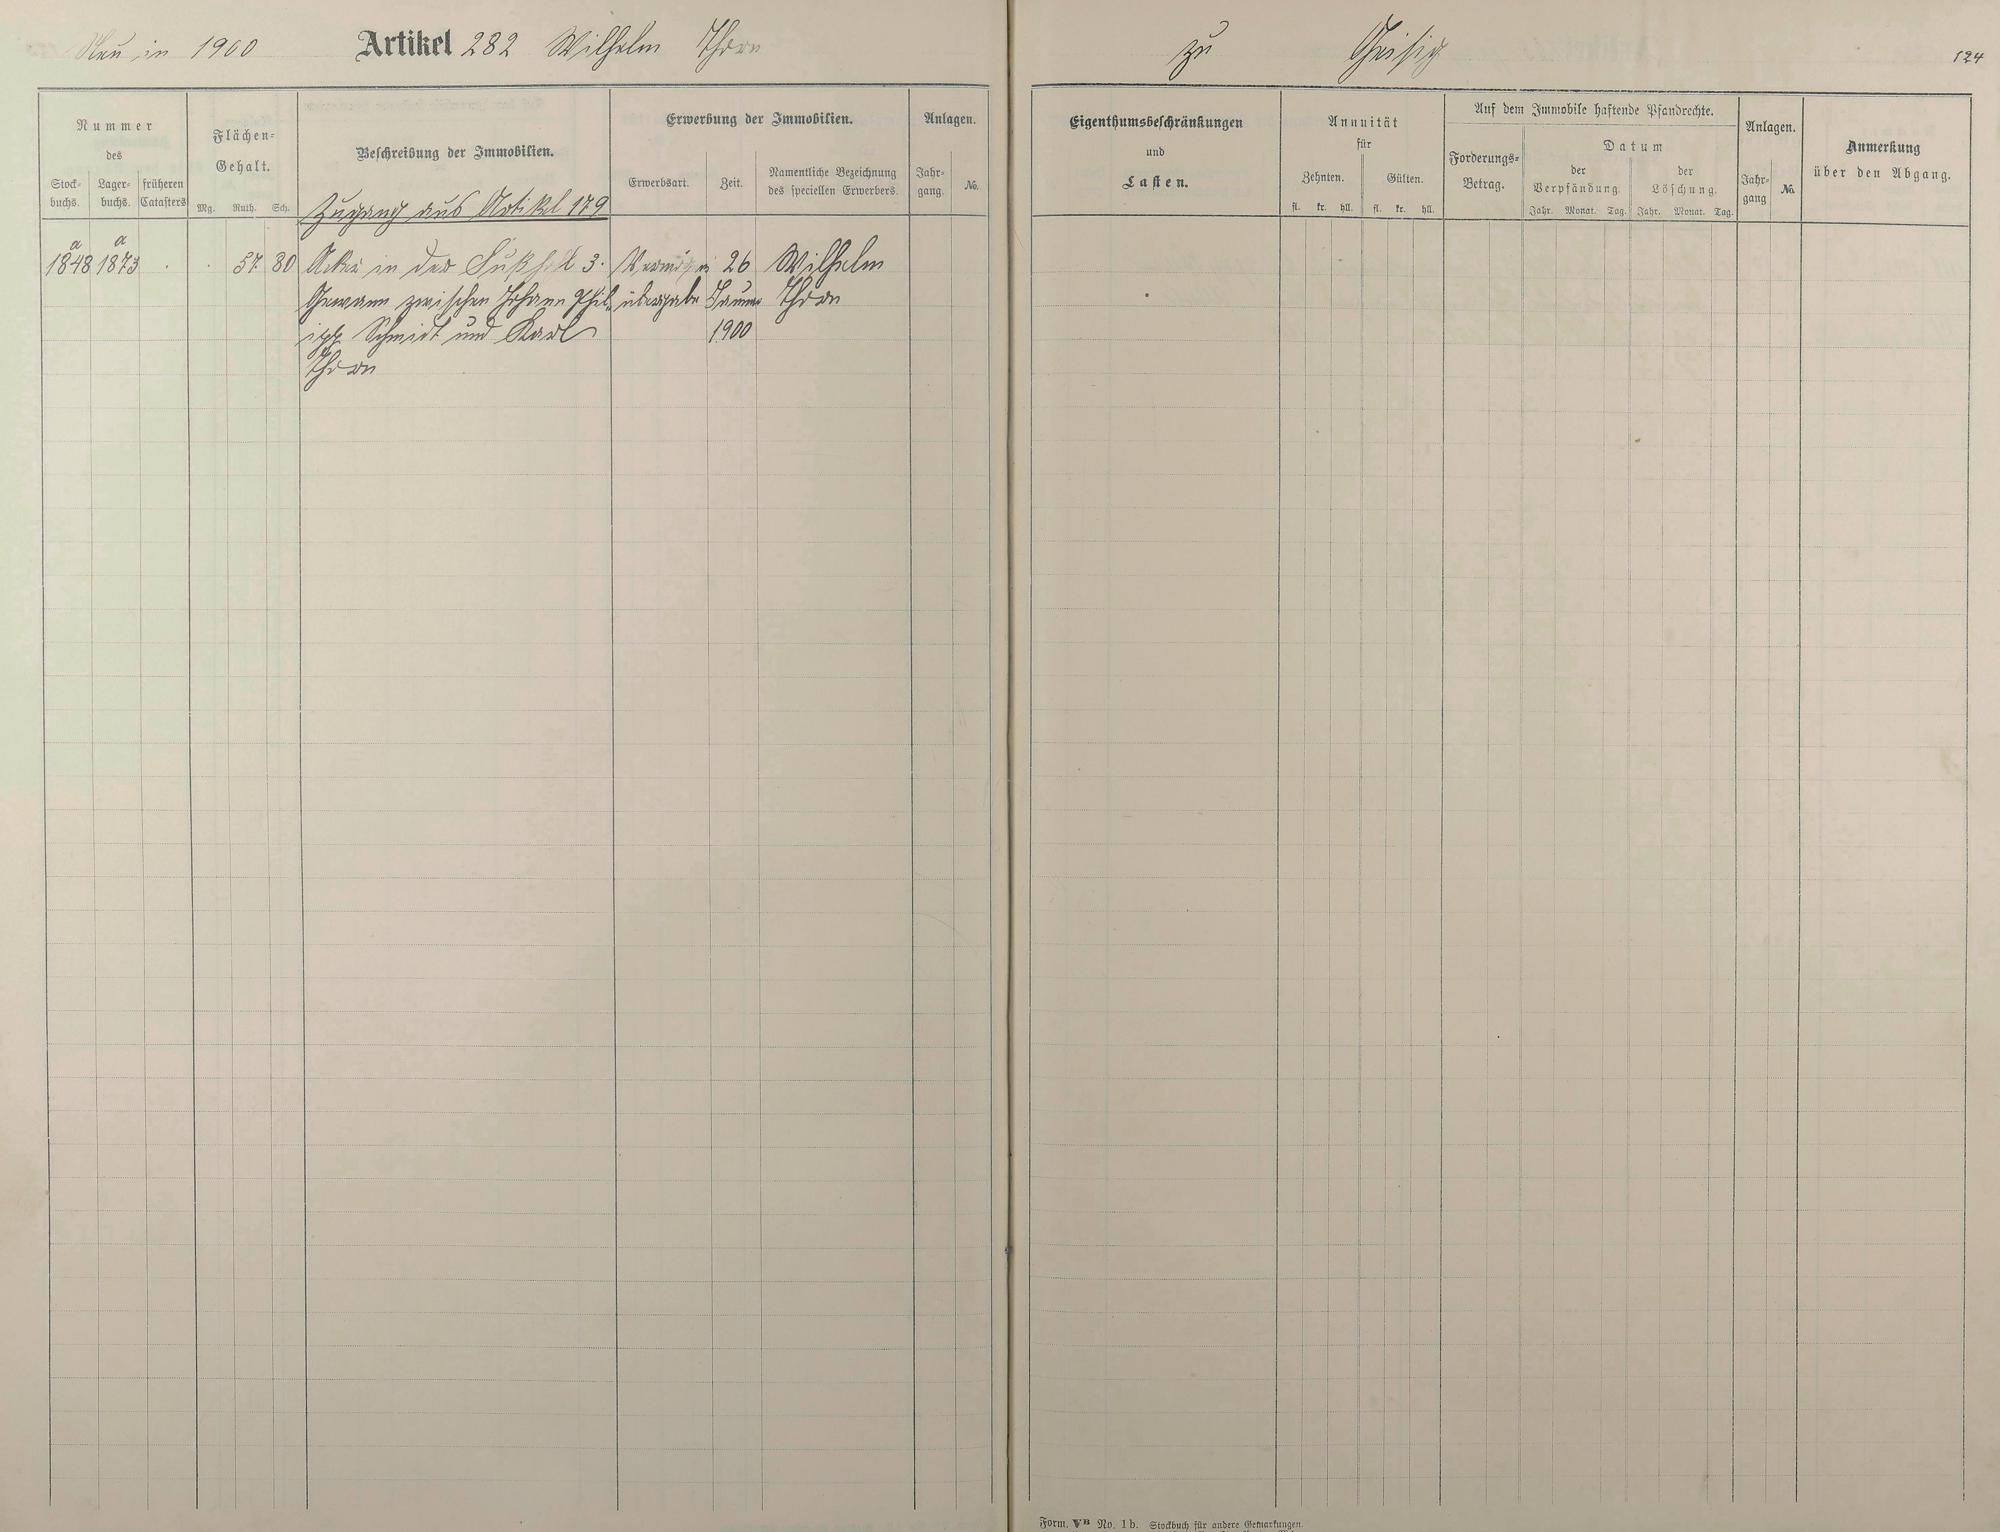 Neu in 1900 Artikel 282 Wilhelm Thorn
Nummer
des
Stock-
buchs.
Lager-
buchs.
früheren
Catasters
Flächen-
Gehalt.
Mg. Ruth. Sch.
Beschreibung der Immobilien.
Erwerbung der Immobilien.
Erwerbsart.
Zeit.
Namentliche Bezeichnung
des speciellen Erwerbers.
Anlagen.
Jahr-
gang.
No.
Zugang aus Artikel 179
a a
1848 1873 . . 57 80 Acker in der 3. 26 Wilhelm
Gewann zwischen Johann Phil- übergabe Januar Thorn
ipp Schmidt und Karl 1900
Thorn
zu Geisig
124
Eigenthumsbeschränkungen
und
Lasten.
Annuität
für
Zehnten.
Gülten.
fl. kr. hll. fl. kr. hll.
Auf dem Immobile haftende Pfandrechte.
Forderungs-
Betrag.
Datum
der
Verpfändung.
der
Löschung.
Jahr. Monat. Tag. Jahr. Monat. Tag.
Anlagen.
Jahr-
gang
No.
Anmerkung
über den Abgang.
Form. VB No. 1b. Stockbuch für andere Gemarkungen.